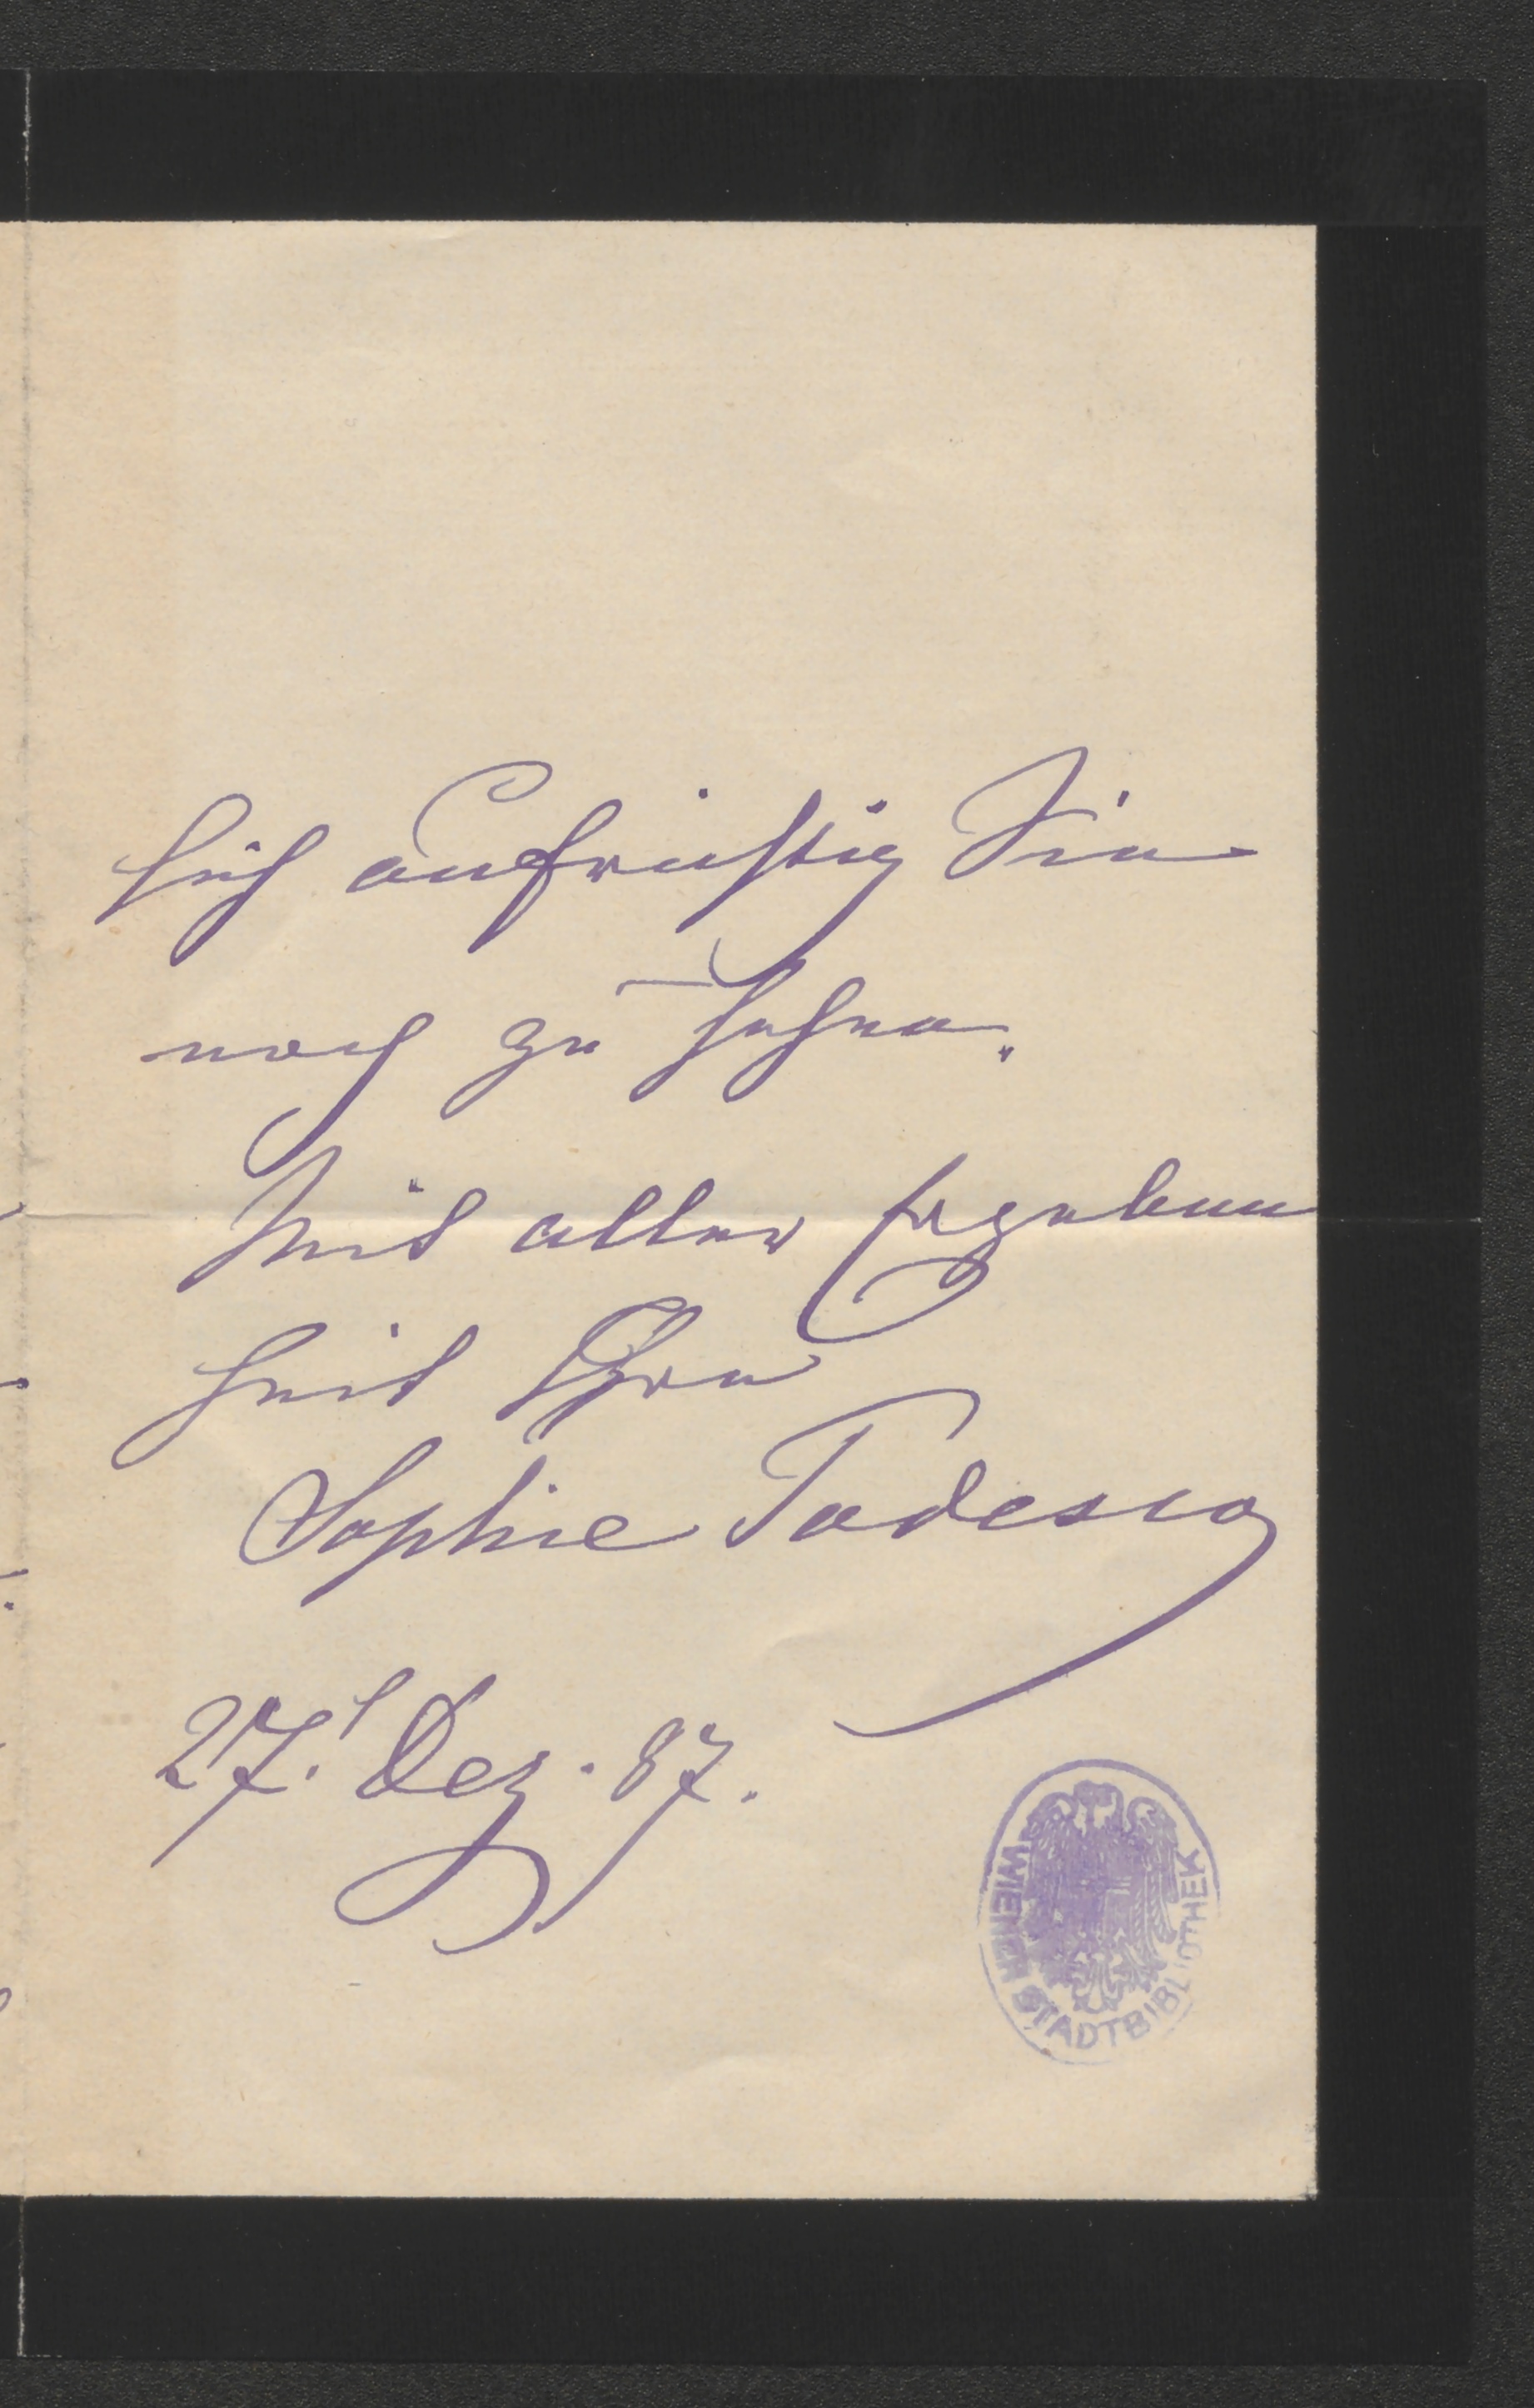 sich aufrichtig Sie
noch zu sehen.
Mit aller Ergeben
heit Ihre
Sophie Todesco
27. Dez. 87.
WIENER STADTBIBLIOTHEK